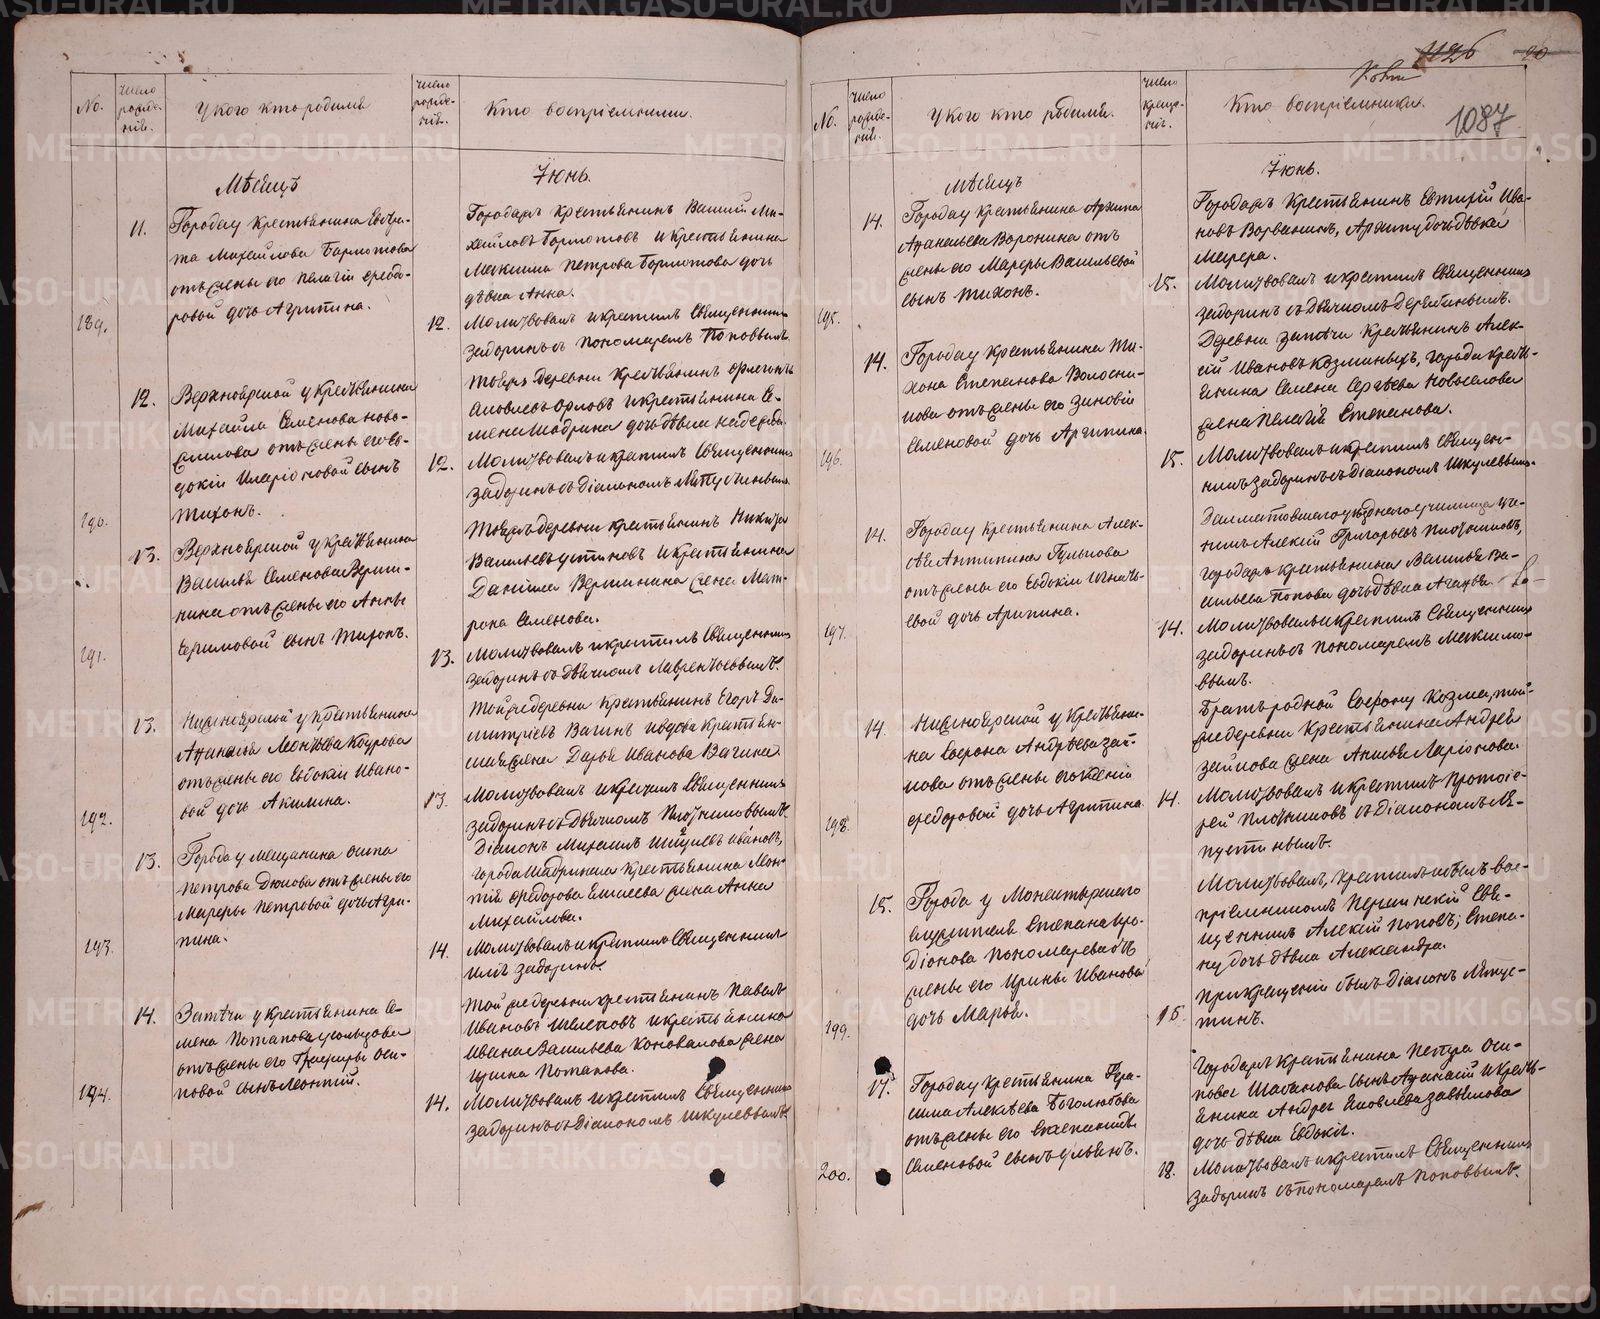 No.
число рожде-нiя.
У кого кто родился
число рожде-нiя.
Кто воспрiемники.
Мѣсяцъ
Iюнь.
11.
Города у крестьянина
та Михайлова Бармотова
отъ жены его Пелагiи Ѳеодо-
ровой дочь Агрипина.
189.
Городаръ крестьянинъ Ми-
хайловъ Бармотовъ и крестьянина
Максима Петрова Бармотова дочь
дѣвка Анна.
12.
Молитвовалъ и крестилъ Священникъ
Задоринъ съ пономаремъ Поповымъ.
12.
Верхнеярской у крестьянина
Михайла Семенова Ново-
селова отъ жены его Ев-
докiи Иларiоновой сынъ
Тихонъ.
190.
Тоеяжъ деревни крестьянинъ
Яковлевъ Орловъ и крестьянина Се-
мена Шадрина дочь дѣвка Надежда.
12.
Молитвовалъ и крестилъ Священникъ
Задоринъ съ Дiакономъ
13.
Верхнеярской у крестьянина
Василья Семенова Верши-
нина отъ жены его Анны
Ефимовой сынъ Тихонъ.
191.
Тоеяжъ деревни крестьянинъ Никита
Васильевъ Устиновъ и крестьянина
Данiила Вершинина жена Мат-
рона Семенова.
13.
Молитвовалъ и крестилъ Священникъ
Задоринъ съ Дьячкомъ Лаврентьевымъ.
13.
Нижнеярской у крестьянина
Афанасья Леонтьева Каурова
отъ жены его Евдокiи Ивано-
вой дочь Акилина.
192.
Тойже деревни крестьянинъ Егоръ Ди-
митрiевъ Вагинъ и вдова крестьян-
ская жена Дарья Иванова Вагина
13.
Молитвовалъ и крестилъ Священникъ
Задоринъ съ Дьячкомъ Плотниковымъ.
13.
Города у мещанина Осипа
Петрова Дюкова отъ жены его
Марѳы Петровой дочь Агри-
пина.
193.
Дiаконъ Михаилъ Ивановъ,
города Шадринска крестьянина
Ѳедорова Елисеева жена Анна
Михайлова.
14.
Молитвовалъ и крестилъ Священ-
никъ Задоринъ.
14.
Затеча у крестьянина Се-
мена Потапова Усольцова
отъ жены его Оси-
повой сынъ Леонтiй.
194.
Тойже деревни крестьянинъ Павелъ
Ивановъ Шелеповъ и крестьянина
Ивана Васильева Коновалова жена
Потапова.
14.
Молитвовалъ и крестилъ Священникъ
Задоринъ съ Дiакономъ Шкулевымъ.
1126
20
1087
No.
число рожде-нiя.
У кого кто родился.
число креще-нiя.
Кто воспрiемники.
Мѣсяцъ
Iюнь.
14.
Города у крестьянина Архипа
Афанасьева Воронина отъ
жены его Марѳы Васильевой
сынъ Тихонъ.
195.
Городаръ крестьянинъ Евтихiй Ива-
новъ дочь дѣвка
15.
Молитвовалъ и крестилъ Священникъ
Задоринъ съ Дьячкомъ Дерябинымъ.
14.
Города у крестьянина Ти-
хона Степанова Волосни-
кова отъ жены его Зиновiи
Семеновой дочь Агрипина.
196.
Деревни Затечи крестьянинъ Алек-
сѣй Ивановъ Козминыхъ, города кресть-
янина Семена Сергѣева Новоселова
жена Пелагiя Степанова.
15.
Молитвовалъ и крестилъ Священ-
никъ Задоринъ съ Дiакономъ Шкулевымъ.
14.
Города у крестьянина Алек-
сѣя Антипина Гулькова
отъ жены его Евдокiи Игнать-
евой дочь Агрипина.
197.
Далматовскаго уѣзднаго училища уче-
никъ Алексiй Григорьевъ Плотниковъ,
городаръ крестьянина Василья Ва-
сильева Попова дочь дѣвка Агафья.
14.
Молитвовалъ и крестилъ Священникъ
Задоринъ съ пономаремъ Максимо-
вымъ.
14.
Нижнеярской у крестьяни-
на Софрона Андрѣева Зай-
кова отъ жены его Ксенiи
Ѳедоровой дочь Агрипина
198.
Братъ родной Софрону Козма, той-
же деревни крестьянина Андрея
Зайкова жена Ларiонова.
14.
Молитвовалъ и крестилъ протоiе-
рей Плотниковъ съ Дiакономъ Ле-
пустинымъ.
15.
Города у Монастырскаго
служителя Степана Иро-
дiонова Пономарева отъ
жены его Ирины Ивановой
дочь Марья.
199.
Молитвовалъ, крестилъ и былъ вос-
прiемникомъ Першинскiй Свя-
щенникъ Алексiй Поповъ; Степа-
ну дочь дѣвка Александра.
При крещенiи былъ Дiаконъ Лепус-
тинъ.
16.
17.
Города у крестьянина Гера-
сима Алексѣева Боголюбова
отъ жены его Степаниды
Семеновой сынъ Ульянъ.
200.
Городаръ крестьянина Петра Оси-
пова Шабанова сынъ Афанасiй и кресть-
янина Андрея Яковлева Завьялова
дочь дѣвка Евдокiя.
18.
Молитвовалъ и крестилъ Священникъ
Задоринъ съ пономаремъ Поповымъ.
METRIKI.GASO-URAL.RU